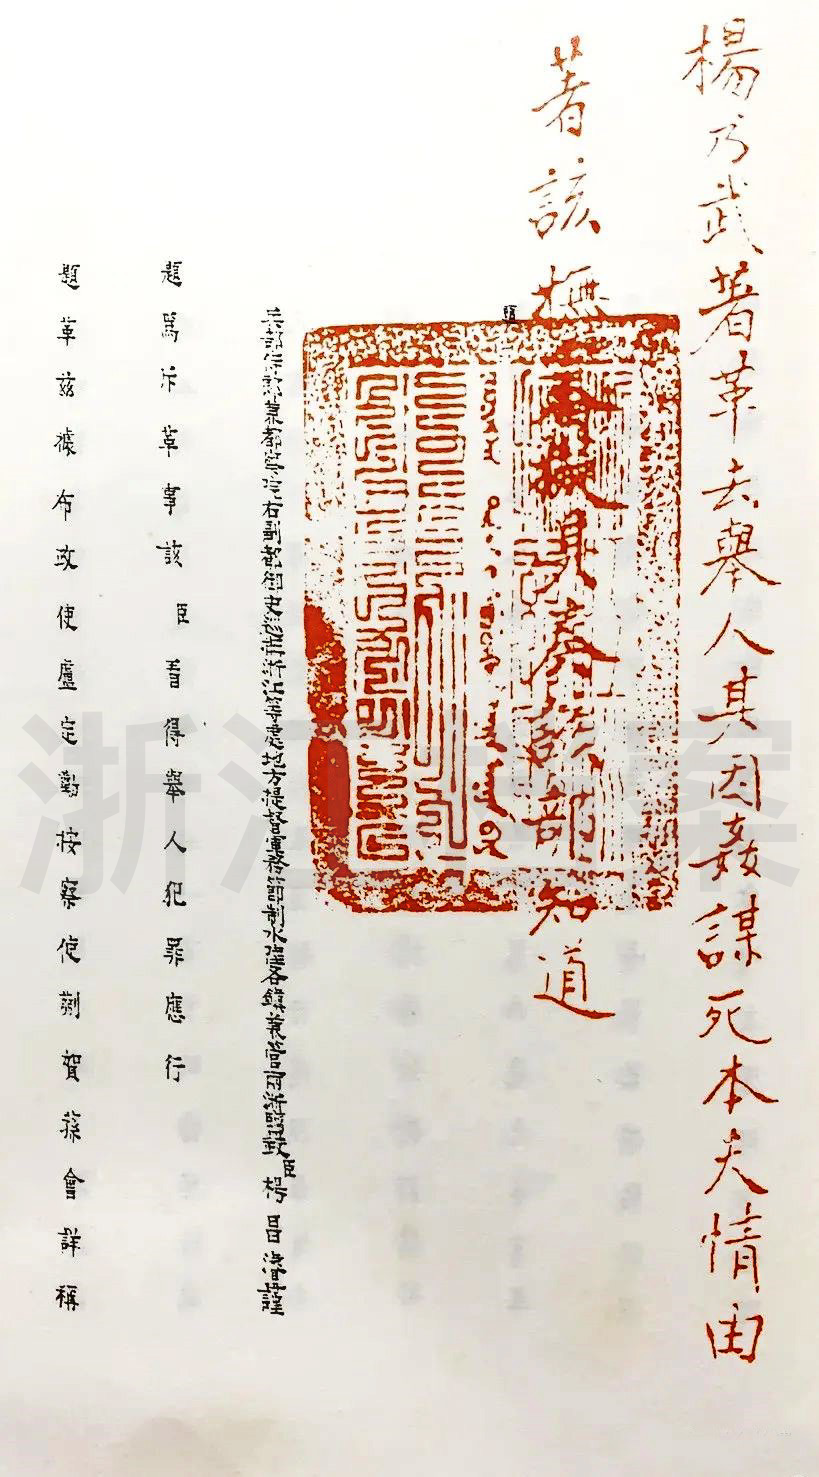 楊乃武著革去舉人其因姦謀死本夫情由
著該撫審擬具奏該部知道
題
兵部侍郎兼都察院右副都御史巡撫浙江等處地方提督軍務節制水陸各鎮兼管兩浙鹽政臣楊昌濬謹
題為斥革事該臣看得舉人犯罪應行
題革茲據布政使盧定勳按察使蒯賀蓀會詳稱
浙江檔案